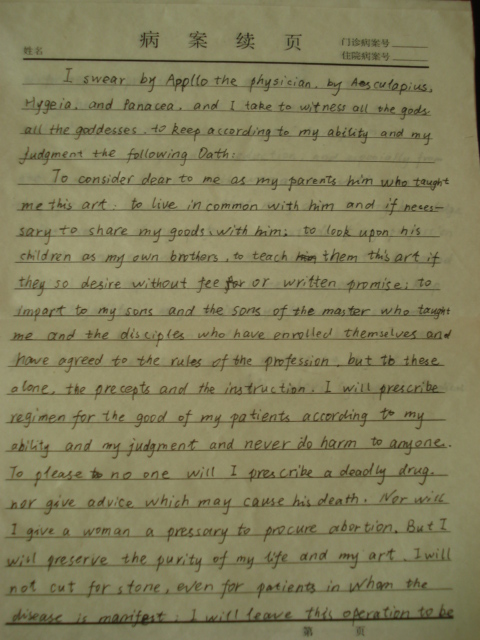 病 案 续 页
姓名
门诊病案号
住院病案号
I swear by Appllo the physician, by Aesculapius,
Hygeia, and Panacea, and I take to witness all the gods.
all the goddesses, to keep according to my ability and my
judgment the following Oath:
To consider dear to me as my parents him who taught
me this art; to live in common with him and if neses-
sary to share my goods with him; to look upon his
children as my own brothers, to teach him them this art if
they so desire without fee for or written promise; to
impart to my sons and the sons of the master who taught
me and the disciples who have enrolled themselves and
have agreed to the rules of the profession, but to these
alone, the precepts and the instruction. I will prescribe
regimen for the good of my patients according to my
ability and my judgment and never do harm to anyone.
To please to no one will I prescribe a deadly drug,
nor give advice which may cause his death. Nor will
I give a woman a pressary to procure abortion. But I
will preserve the purity of my life and my art. I will
not cut for stone, even for patients in whom the
disease is manifest; I will leave this operation to be
第 页